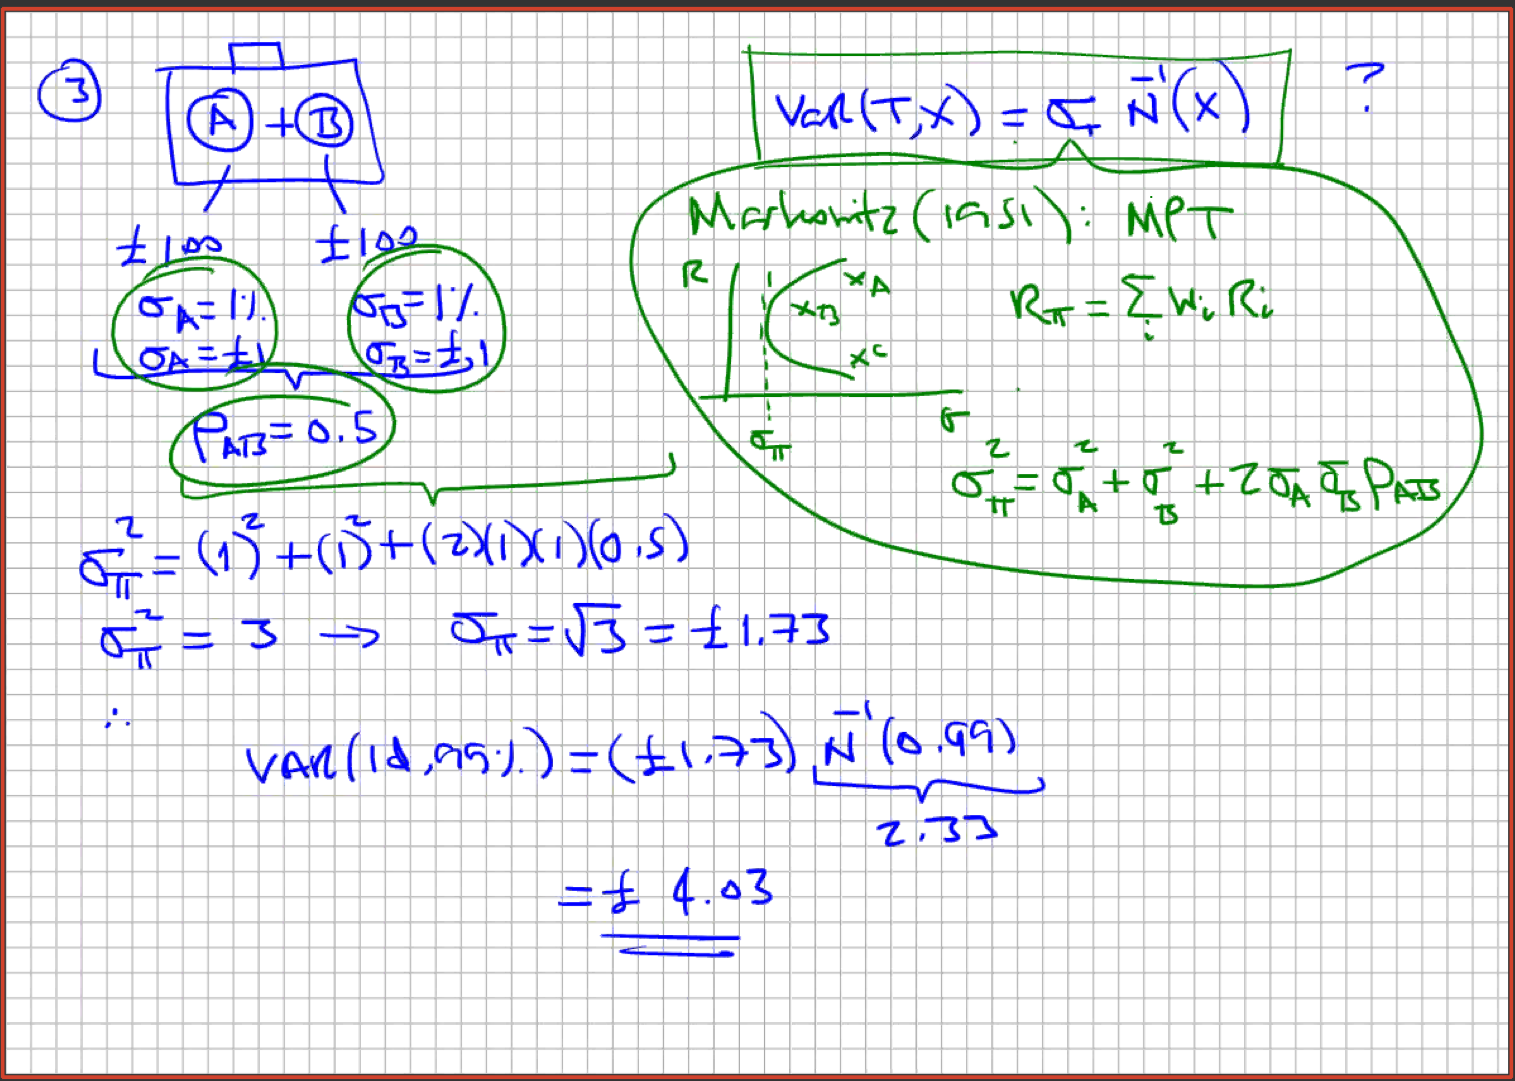 3
A + B
£100 £100
σA = 1% σB = 1%
σA = £1 σB = £1
ρAB = 0.5
VaR(T,X) = σT N⁻¹(X) ?
Markowitz (1951): MPT
R
xA
xB
xC
σπ
σ
Rπ = Σi Wi Ri
σπ² = σA² + σB² + 2σA σB ρAB
σπ² = (1)² + (1)² + (2)(1)(1)(0.5)
σπ² = 3 → σπ = √3 = £1.73
∴
VAR(1d, 99%) = (£1.73) N⁻¹(0.99)
2.33
= £ 4.03